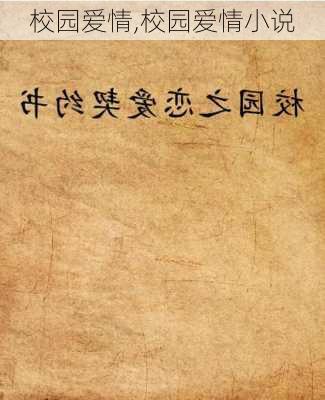 校园爱情,校园爱情小说
校园之恋爱契约书